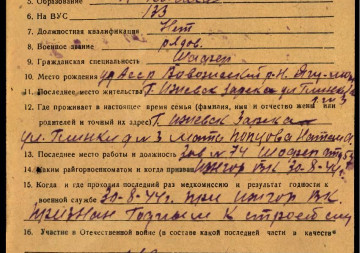 5. Образование
6. На ВУС 133
7. Должностная квалификация Нет
8. Военное звание рядов.
9. Гражданская специальность Шофер
10. Место рождения
11. Последнее место жительства Г. Ижевск Зарека ул.
12. Где проживает в настоящее время семья (фамилия, имя и отчество жены или
родителя и точный их адрес) Г. Ижевск Зарека
ул. д № 3 мать
13. Последнее место работы и должность Зав. № 74 Шофер
14. Каким райгорвоенкоматом и когда призван ИжГор ВК 30-8-44г.
15. Когда и где проходил последний раз медкомиссию и результат годности к
военной службе 30-8-44г. при ИжГор ВК.
признан Годным к строевой
16. Участие в Отечественной войне (в составе какой последней части в качеств